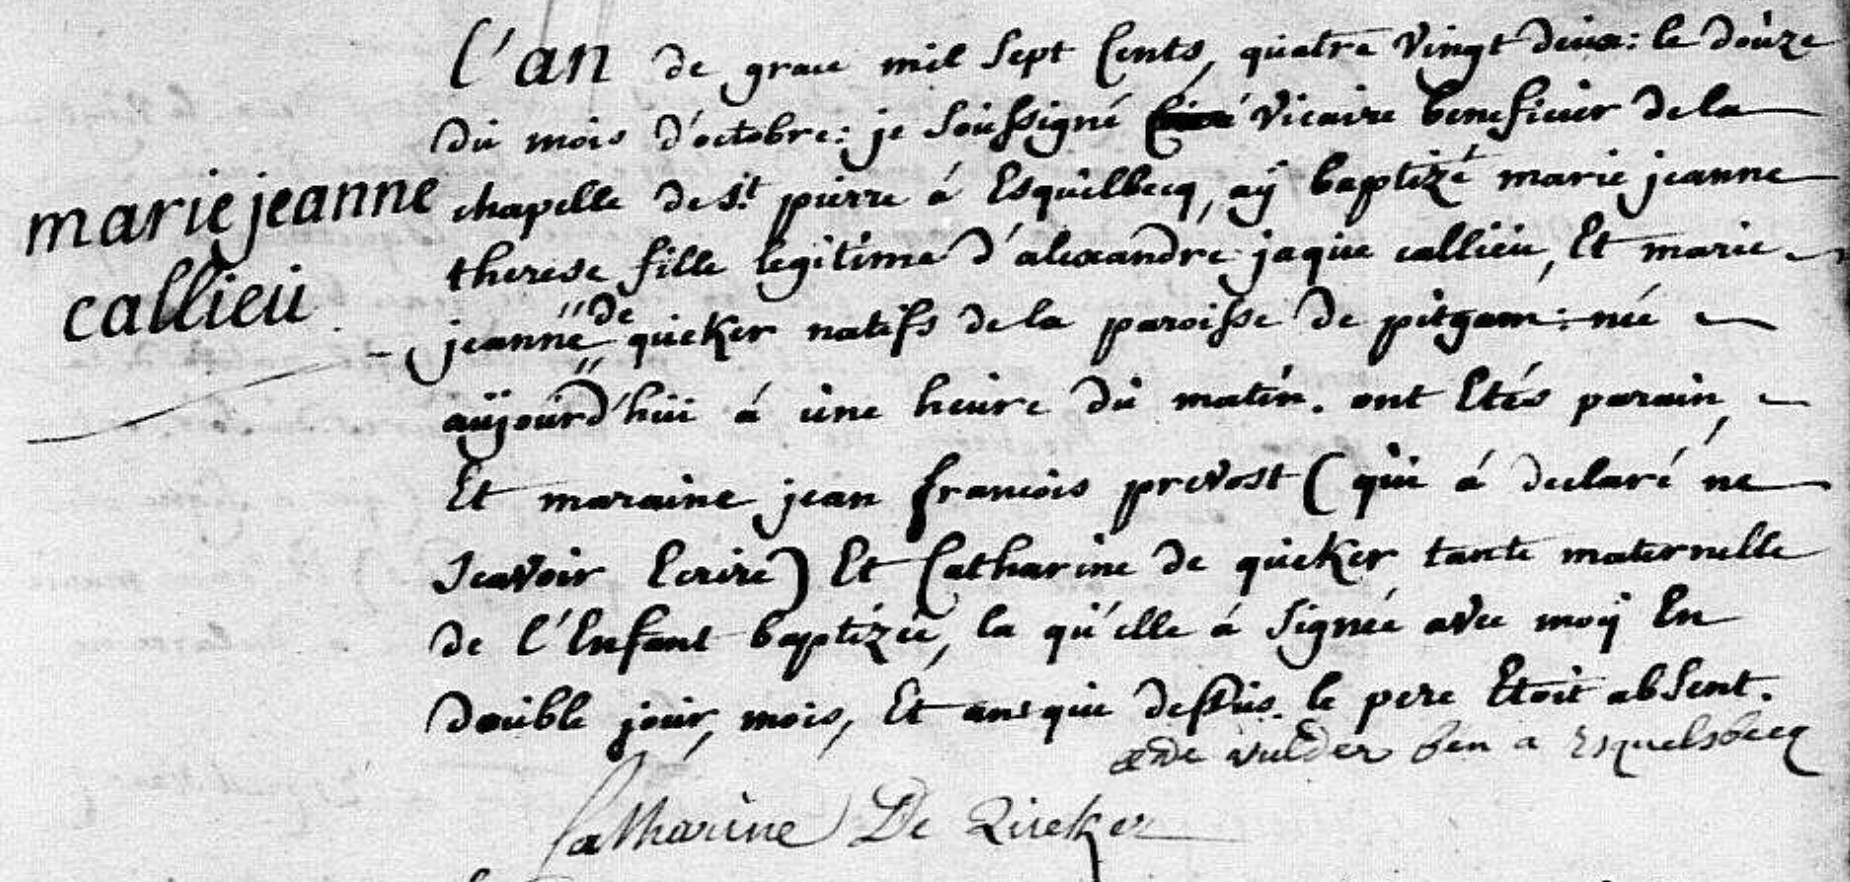 marie jeanne
callieu
L'an de grace mil Sept Cents, quatre Vingt deux: le douze
du mois d'octobre: je Soussigné Vicaire beneficier de la
chapelle de St. pierre á Esquelbecq, aÿ baptizé marie jeanne
therese fille legitime d'alexandre jaque callieu, Et marie
jeanne de quieker natifs de la paroisse de pitgam: née
aujourd'hui á une heure du matin. ont Etés parain,
Et maraine jean francois prevost (qui á declaré ne
Scavoir Ecrire) Et Catharine de quieker tante maternelle
de l'Enfant baptizée, la qu'elle á Signée avec moÿ En
double jour, mois, Et ans que dessus. le pere Etoit absent.
De vulder ben a Esquelsbecq
Catharine De Quieker